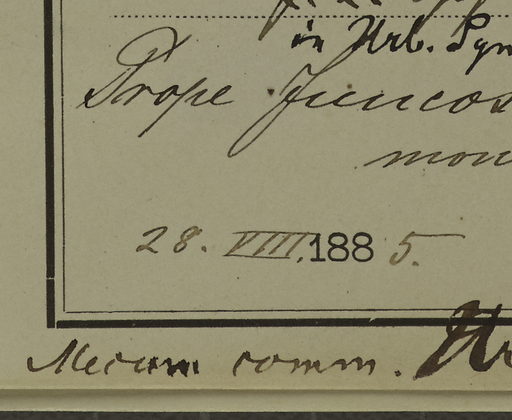 in Urb. Syn
Prope Juncos
mon
28. VIII. 1885.
Mecum comm. Ur